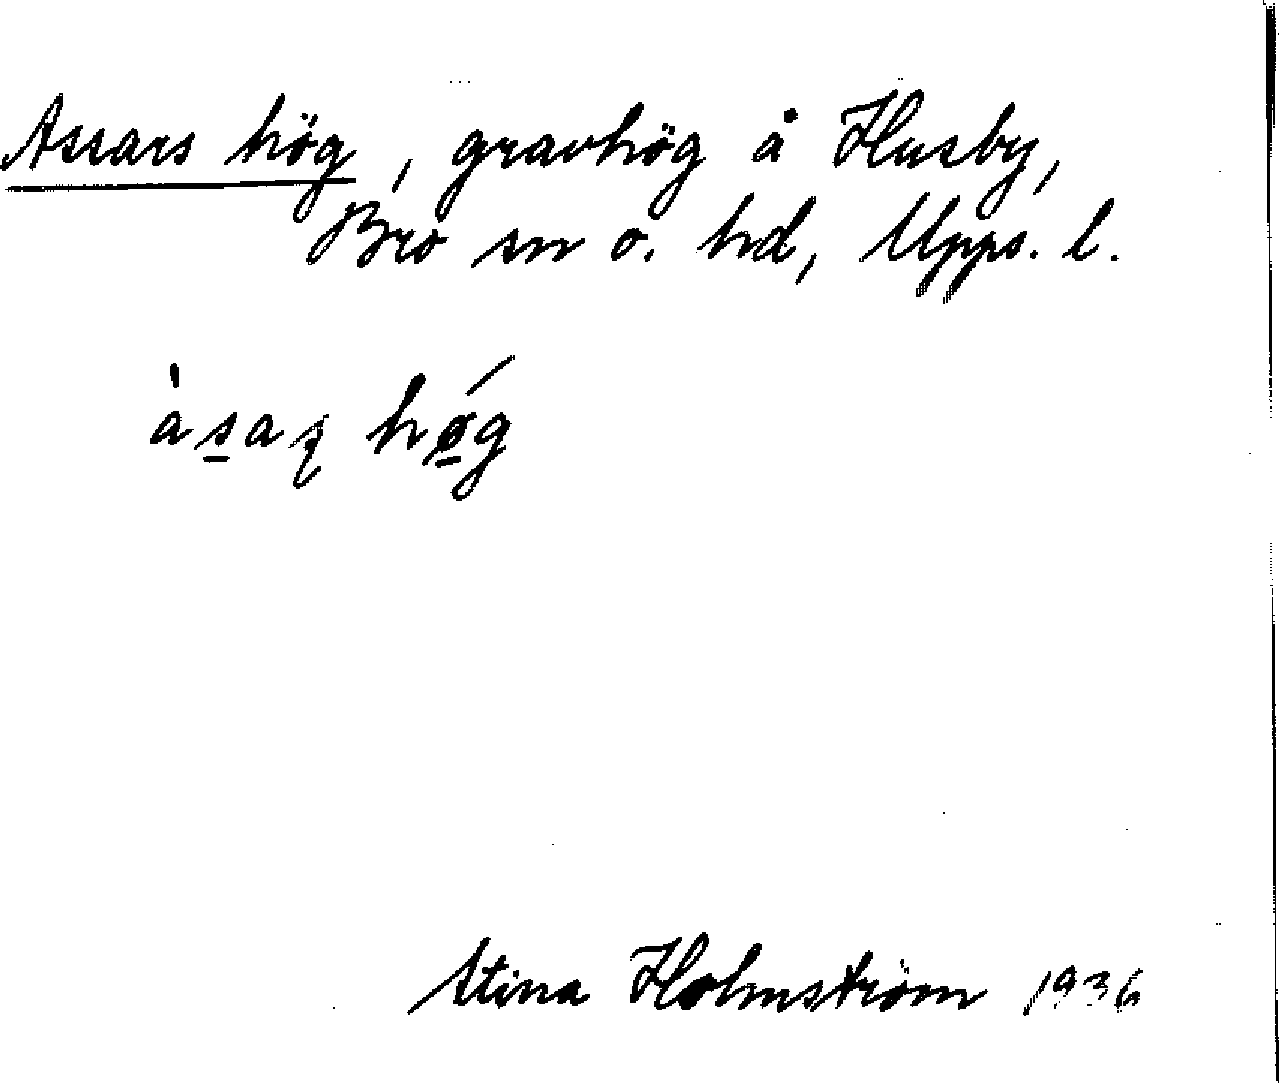 Assars hög, gravhög å Husby,
Bro sn o. hd, Upps. l.
àsaʂ hǿg
Stina Holmström 1936